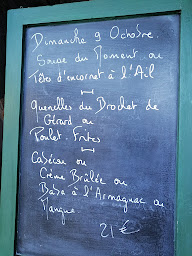 Dimanche 9 Octobre.
Soupe du Moment ou
Têtes d'encornet à l'Ail
Quenelles du Brochet de
Gérard ou
Poulet. Frites
Cabécou ou
Crème Brûlée ou
Baba à l'Armagnac ou
Mangue.
21 €